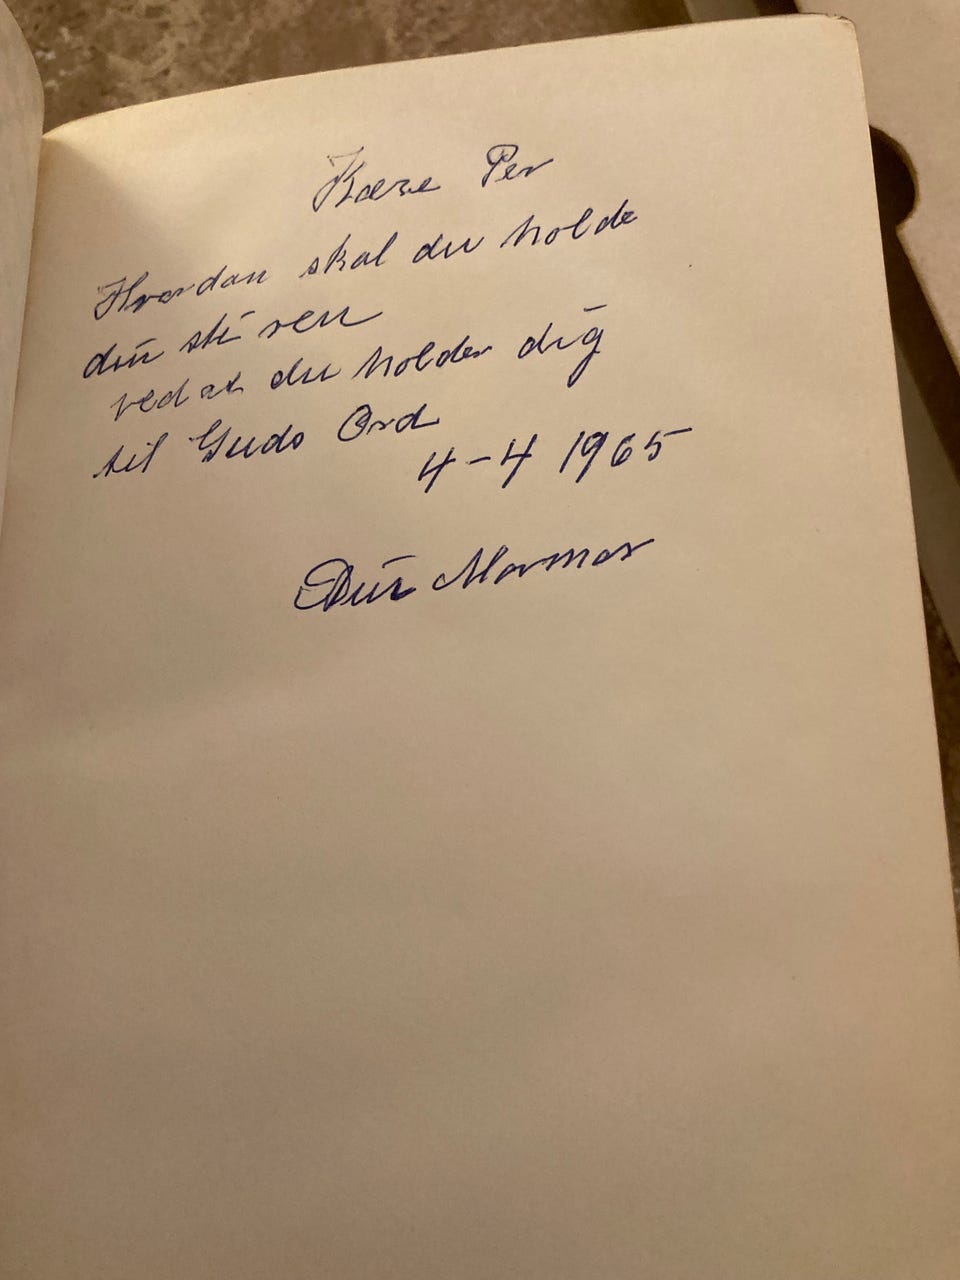 Kære Per
Hvordan skal du holde
din sti ren
ved at du holder dig
til Guds Ord
4-4 1965
Din Mormor